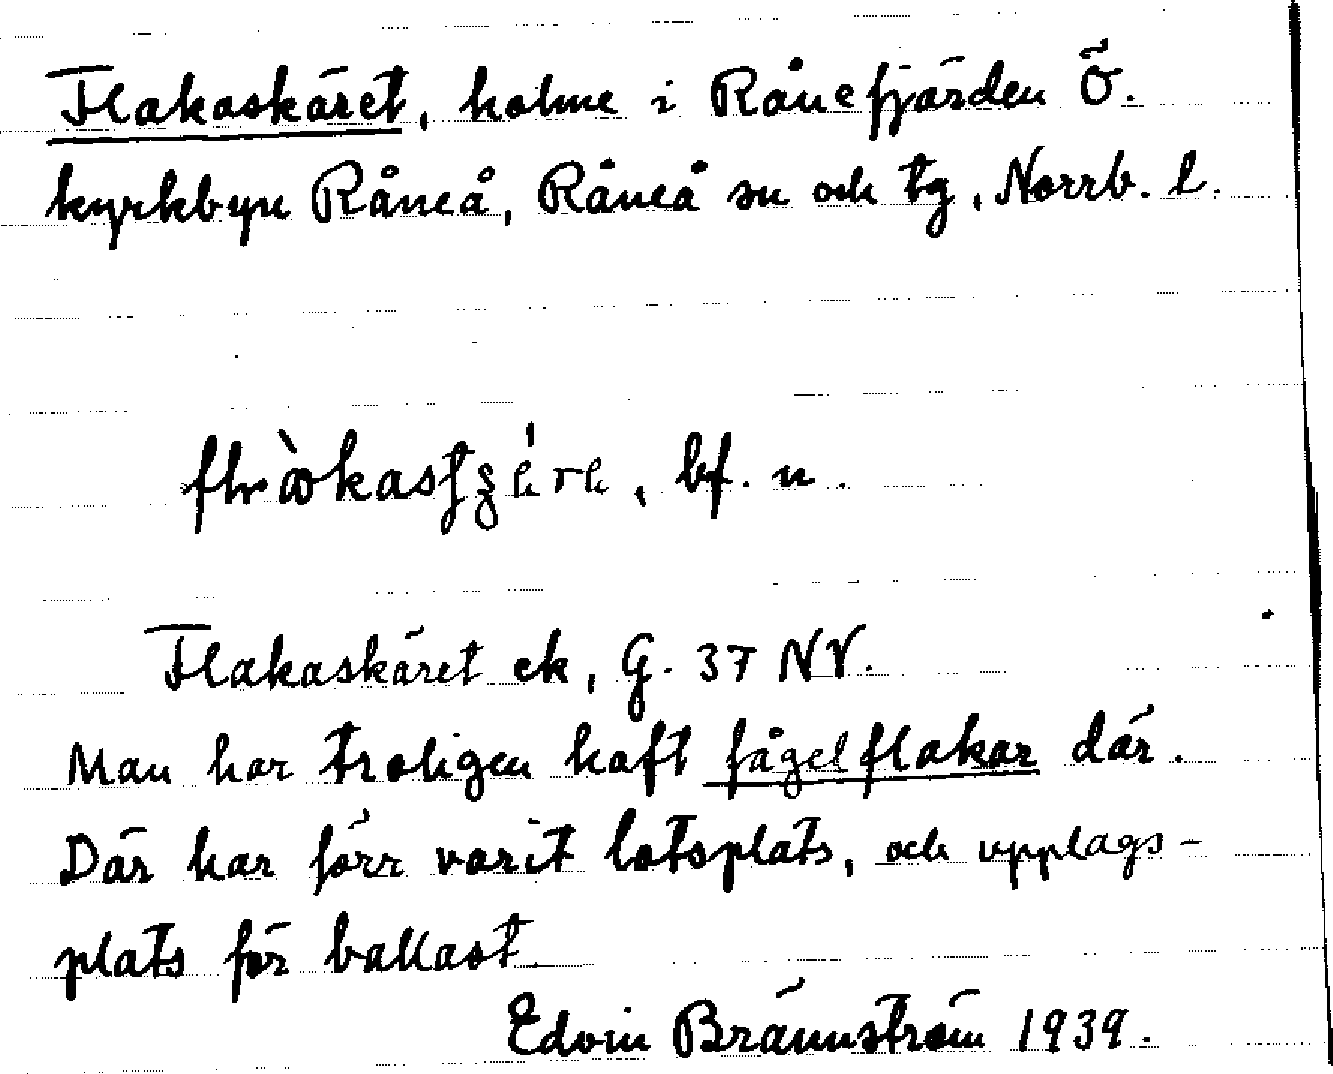 Flakaskäret, holme i Rånefjärden Ö.
kyrkbyn Råneå, Råneå sn och tg, Norrb. l.
bf. n.
Flakaskäret ek, G. 37 NV.
Man har troligen haft fågelflakar där.
Där har förr varit lotsplats, och upplags-
plats för ballast.
Edvin Brännström 1939.